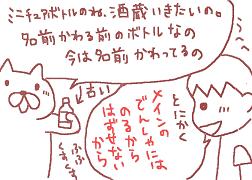 ミニチュアボトルのね、酒蔵いきたいの。
名前かわる前のボトルなの
今は名前かわってるの
古い
とにかく
メインの
でんしゃには
のるから
はずせない
から
ぷぷ
くすくす